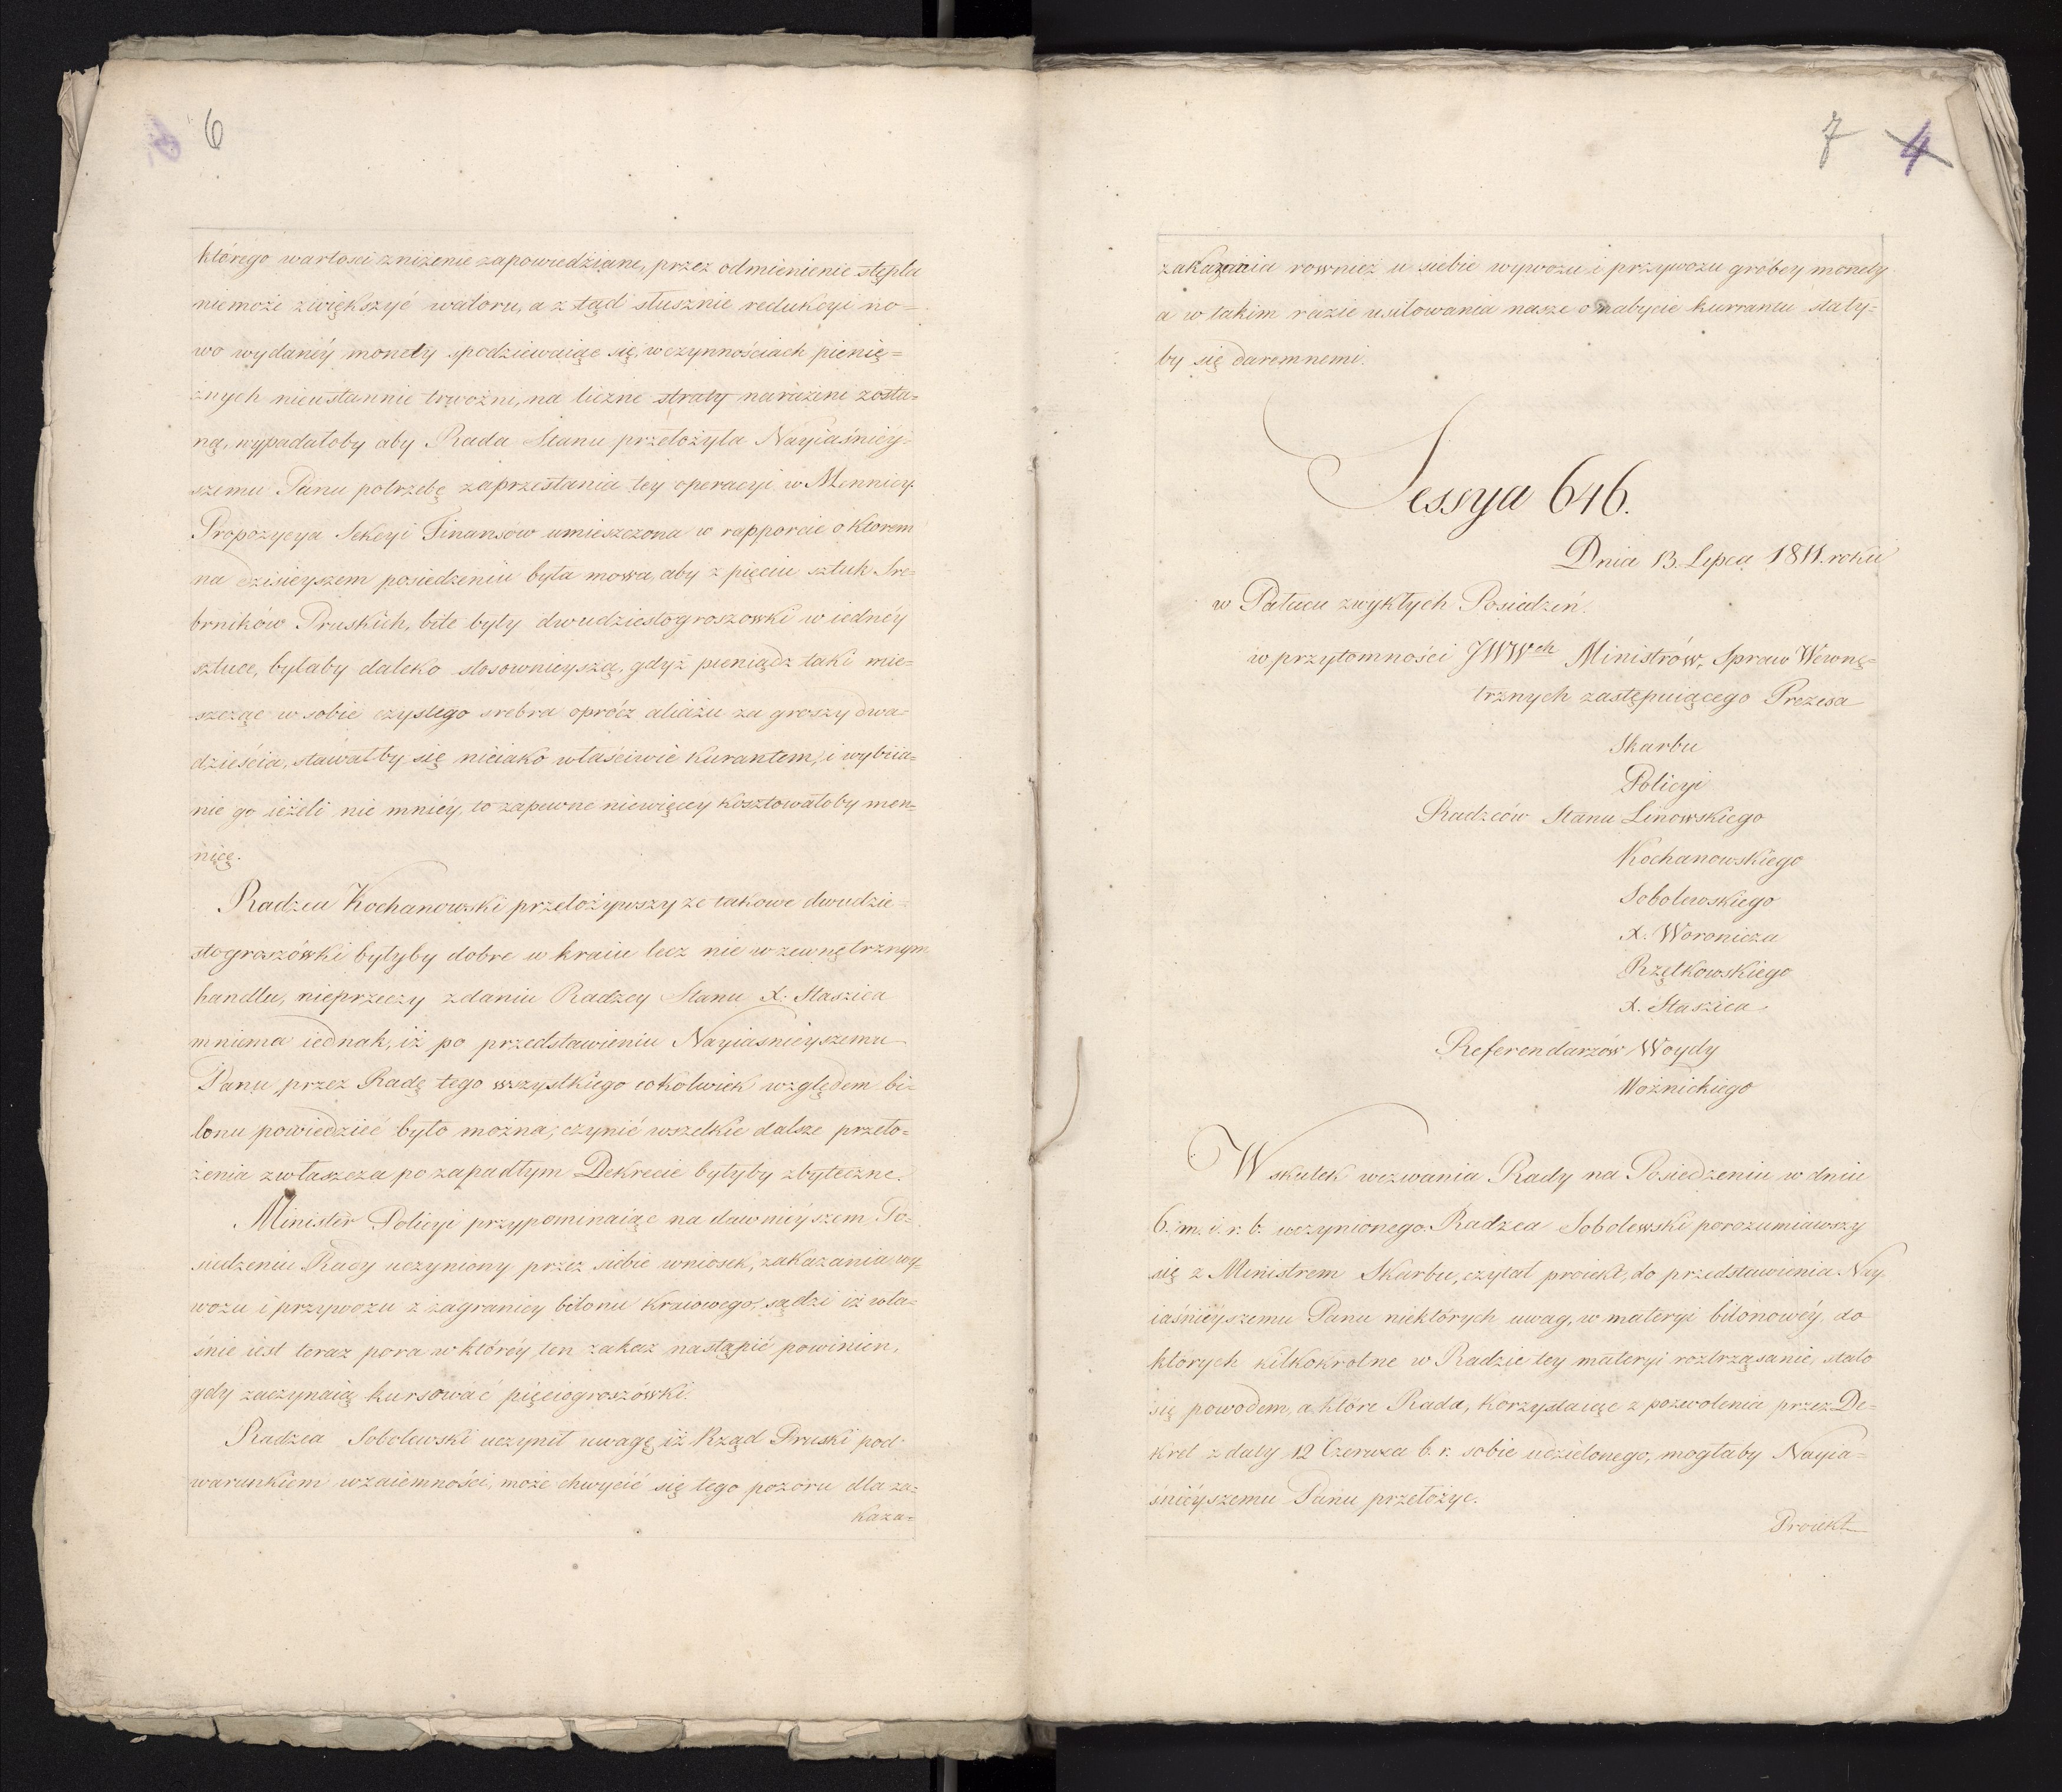 6
którego wartosci zniżenie zapowiedziane, przez odmienienie stępla
niemoże zwiększyć waloru, a z tąd słusznie redukcyi no=
wo wydanéy monety spodziewaiąc się, w czynnościach pienię=
żnych nieustannie trwożni, na liczne straty narażeni zosta=
ną, wypadałoby aby Rada Stanu przełożyła Nayiaśniéy=
szemu Panu potrzebę zaprzestania tey operacyi w Mennicy.
Propozycya Sekcyi Finansow umieszczona w rapporcie o ktorem
na dzisieyszem posiedzeniu była mowa, aby z pięciu sztuk Sre=
brników Pruskich, bite były dwudziestogroszowki w iednéy
sztuce, byłaby daleko stosownieyszą, gdyż pieniądz taki mie=
szcząc w sobie czystego srebra oprócz aliażu za groszy dwa=
dzieścia, stawałby się nieiako właściwie Kurantem, i wybiia=
nie go ieżeli nie mniéy, to zapewne niewięcey kosztowałoby men=
nicę.
Radzca Kochanowski przełożywszy ze takowe dwudzie=
stogroszówki byłyby dobre w kraiu lecz nie w zewnętrznym
handlu, nieprzeczy zdaniu Radzcy Stanu X. Staszica
mniema iednak, iż po przedstawieniu Nayiasnieyszemu
Panu przez Radę tego wszystkiego cokolwiek względem bi=
lonu powiedzieć było można, czynić wszelkie dalsze przeło=
żenia zwłaszcza po zapadłym Dekrecie byłyby zbyteczne.
Minister Policyi przypominaiąc na dawniéyszem Po=
siedzeniu Rady uczyniony przez siebie wniosek, zakazania wy=
wozu i przywozu z zagranicy bilonu Kraiowego, sądzi iż wła=
śnie iest teraz pora w któréy ten zakaz nastąpić powinien,
gdy zaczynaią kursować pięciogroszówki.
Radzca Sobolewski uczynił uwagę iż Rząd Pruski pod
warunkiem wzaiemności, może chwycić się tego pozoru dla za=
kaza=
7 4
zakazania rownież u siebie wywozu i przywozu gróbey monety
a w takim razie usiłowania nasze o nabycie kurrantu stały=
by się daremnemi.
Sessya 646.
Dnia 13. Lipca 1811. roku
w Pałacu zwykłych Posiadzeń.
w przytomności JWWch Ministrów, Spraw Wewnę=
trznych zastępuiącego Prezesa
Skarbu
Policyi
Radzców Stanu Linowskiego
Kochanowskiego
Sobolewskiego
X. Woronicza
Rzętkowskiego
X. Staszica
Referendarzów Woydy
Woźnickiego
W skutek wezwania Rady na Posiedzeniu w dniu
6. m. i. r. b. uczynionego Radzca Sobolewski porozumiawszy
się z Ministrem Skarbu, czytał proiekt, do przedstawienia Nay=
iaśniéyszemu Panu niektórych uwag, w materyi bilonowéy, do
których kilkokrotne w Radzie tey materyi roztrząsanie, stało
się powodem, a które Rada, korzystaiąc z pozwolenia przez De=
kret z daty 12 Czerwca b. r. sobie udzielonego, mogłaby Nayia=
śniéyszemu Panu przełożyc.
Proiekt